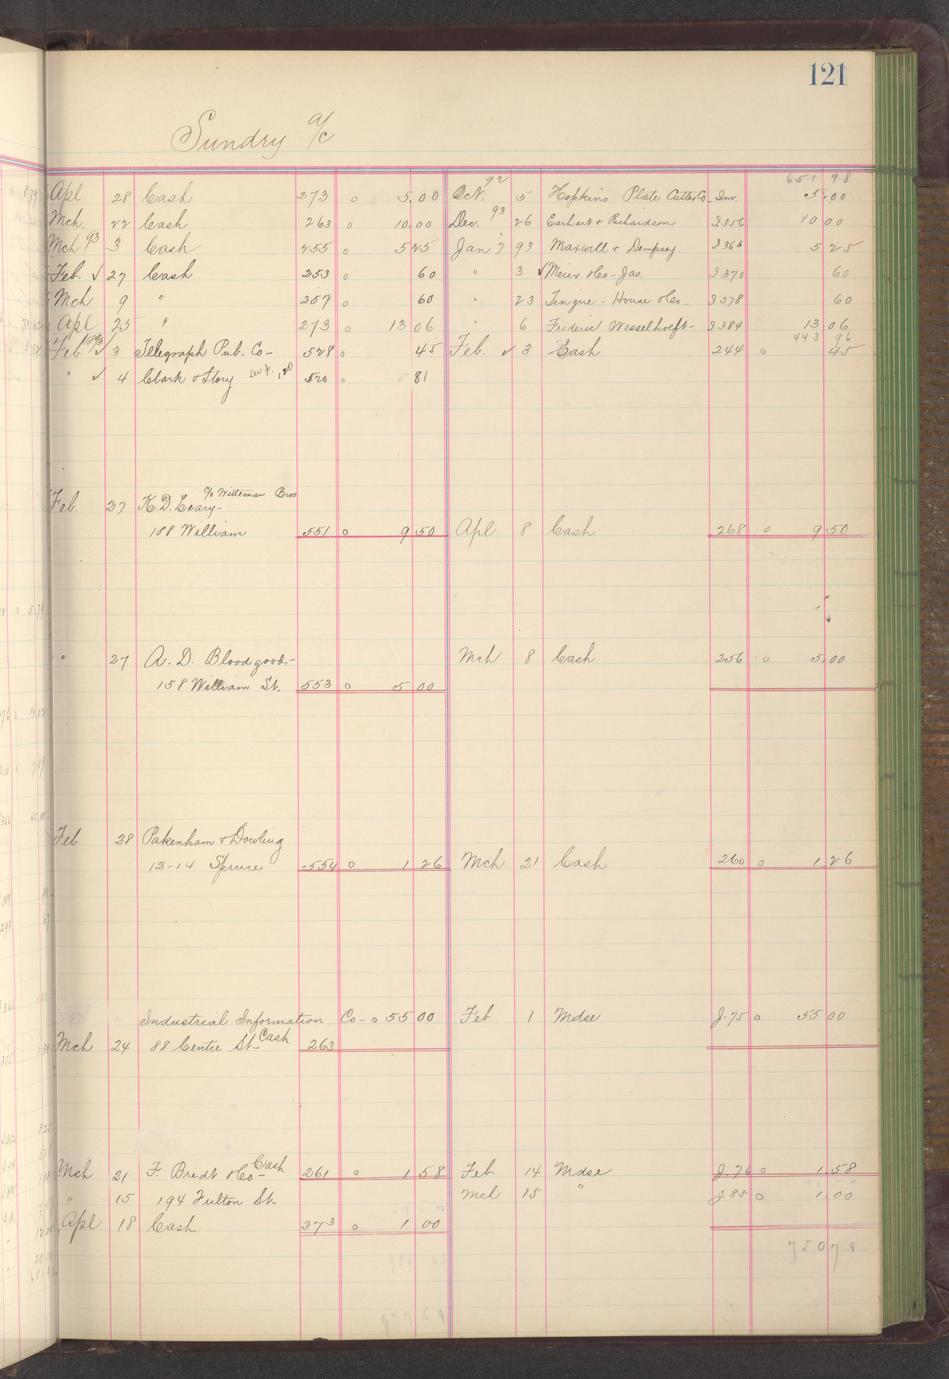 121
Sundry a/c
651 98
Apl 28 Cash 273 o 5.00 Oct. 92 5 Hopkins Plate Cutter Co. Inv. 5.00
Mch 22 Cash 263 o 10.00 Dec. 93 26 Earhart & Richardson J356 10 00
Mch 93 3 Cash 255 o 5 25 Jan 7 93 Maxwill & Dempsey. J365 5 25
Feb. ✓ 27 Cash 253 o 60 " 3 ✓ Meier & Co - Jas. J370 60
Mch 9 " 257 o 60 " 23 Tingue - House & Co J378 60
Apl 25 " 273 o 13 06 " 6 Frederic Wesselhoeft - J384 13 06
443 96
Feb 1893 ✓ 3 Telegraph Pub. Co - 528 o 45 Feb. ✓ 3 Cash 244 o 45
" ✓ 4 Clark & Story 520 o 81
Feb 27 K. D. Leary - c/o Witteman Bros
188 William 551 o 9 50 Apl 8 Cash 268 o 9 50
" 27 A. D. Bloodgood - Mch 8 Cash 256 o 5.00
158 William St. 553 o 5 00
Feb 28 Pakenham & Dowling
12-14 Spruce 554 o 1 26 Mch 21 Cash 260 o 1.26
Industrial Information Co - o 55 00 Feb 1 Mdse J. 75 o 55 00
Mch 24 88 Centre St. Cash 263
Mch 21 F. Bredt & Co - Cash 261 o 1 58 Feb 14 Mdse J. 76 o 1.58
" 15 194 Fulton St. Mch 15 " J. 85 o 1.00
Apl 18 Cash 273 o 1 00
750 78